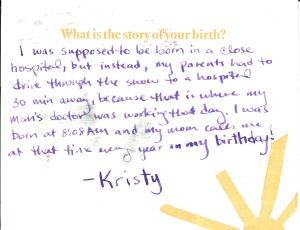 What is the story of your birth?
I was supposed to be born in a close
hospital, but instead, my parents had to
drive through the snow to a hospital
30 min away, because that is where my
mom's doctor was working that day. I was
born at 8:08 AM and my mom calls me
at that time every year on my birthday!
- Kristy